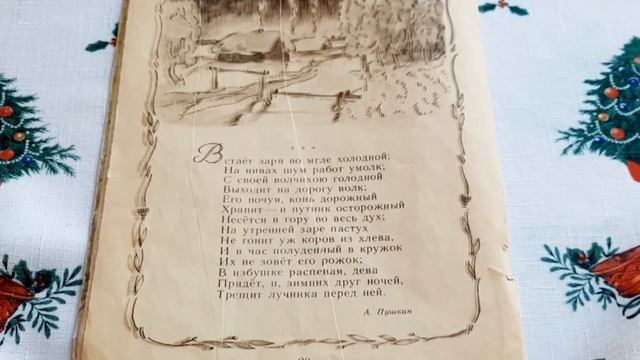 * * *
Встаёт заря во мгле холодной;
На нивах шум работ умолк;
С своей волчихою голодной
Выходит на дорогу волк;
Его почуя, конь дорожный
Храпит — и путник осторожный
Несётся в гору во весь дух;
На утренней заре пастух
Не гонит уж коров из хлева,
И в час полуденный в кружок
Их не зовёт его рожок;
В избушке распевая, дева
Прядёт, и, зимних друг ночей,
Трещит лучинка перед ней.
А. Пушкин